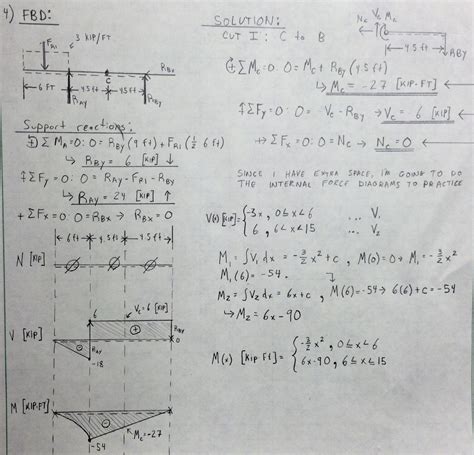 4) FBD:
3 KIP/FT
F_R1
R_Bx
C
6 FT 4.5 ft 4.5 ft
R_AY R_BY
Support reactions:
ΣM_A=0: 0= R_BY(9 ft) + F_R1(½ 6 ft)
↳ R_BY = 6 [KIP] ↓
↑ΣF_Y=0: 0= R_AY - F_R1 - R_BY
↳ R_AY = 24 [KIP] ↑
+ ΣF_X=0: 0= R_BX → R_BX=0
6 ft 4.5 ft 4.5 ft
N [KIP]
V_C = 6 [KIP]
6
V [KIP]
R_AY
R_BY
0
-18
M [KIP·FT]
M_C = -27
-54
SOLUTION:
CUT I: C to B
N_C V_C M_C
4.5 ft R_BY
+ΣM_C=0: 0= M_C + R_BY(4.5 ft)
↳ M_C = -27 [KIP·FT]
↑ΣF_Y=0: 0= V_C - R_BY → V_C = 6 [KIP]
→ΣF_X=0: 0= N_C → N_C = 0
SINCE I HAVE EXTRA SPACE, I'M GOING TO DO
THE INTERNAL FORCE DIAGRAMS TO PRACTICE
V(x) [KIP] = { -3x, 0≤x<6 ... V₁
6, 6<x<15 ... V₂
M₁ = ∫V₁ dx = -3/2 x² + c, M(0)=0 → M₁ = -3/2 x²
M₁(6) = -54.
M₂ = ∫V₂ dx = 6x + c, M(6) = -54 → 6(6) + c = -54
↳ M₂ = 6x - 90
M(x) [KIP·Ft] = { -3/2 x², 0≤x<6
6x-90, 6≤x≤15